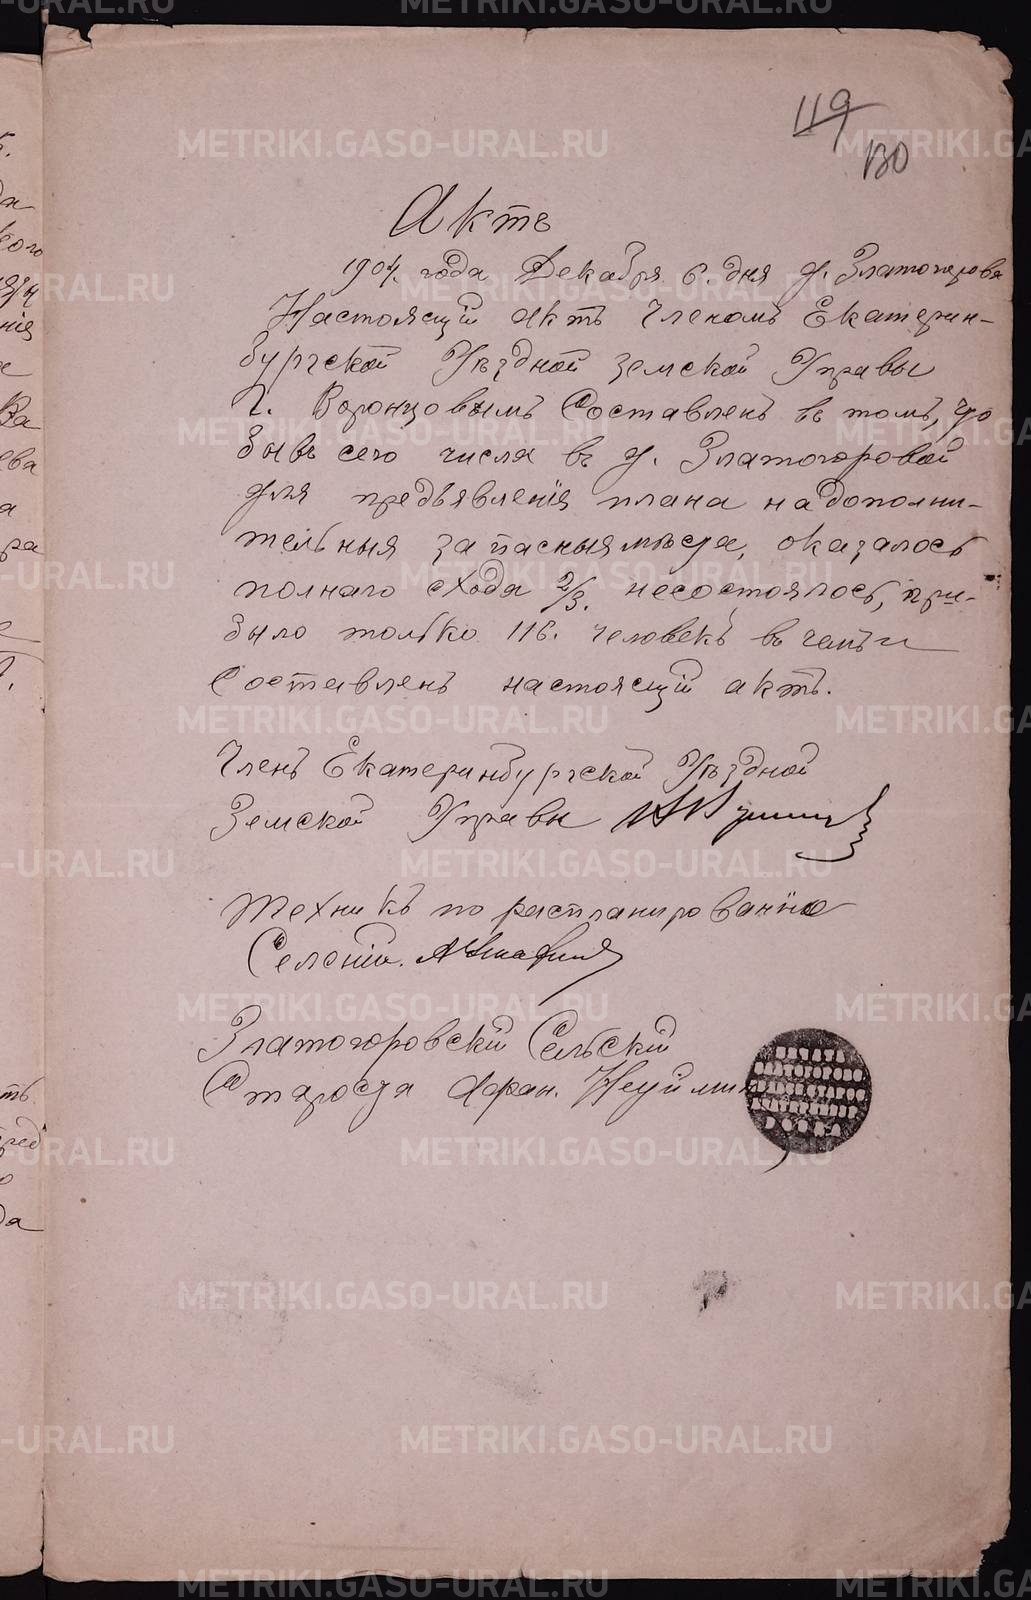 119
130
Актъ
1904. года Декабря 6. дня д. Златогорова
Настоящій актъ Членомъ Екатерин-
бургской Уѣздной земской Управы
Г. Воронцовымъ Составленъ въ томъ, что
бывъ сего числа въ д. Златогоровой
для предъявленія плана на дополни-
тельныя запасныя мѣста, оказалось
полнаго схода 2/3. несостоялось, при-
было только 116. человекъ въ чемъ и
Составленъ настоящій актъ.
Членъ Екатеринбургской Уѣздной
Земской Управы
Техникъ по распланированію
Селеній.
Златогоровскій Сельскій
Староста Афан. Неуймин
METRIKI.GASO-URAL.RU